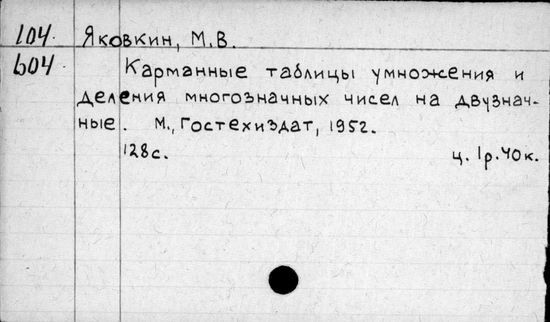 104 Яковкин, М.В.
604 Карманные таблицы умножения и
деления многозначных чисел на двузнач-
ные. М., Гостехиздат, 1952.
128с. ц. 1р.40к.